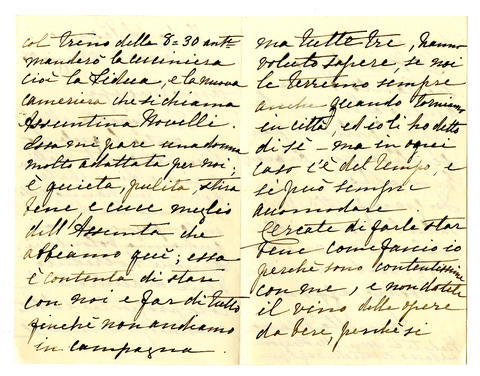 col treno delle 8=30 ant.
manderò la cuciniera
cioè la Fidua, e la nuova
cameriera che si chiama
Assuntina Novelli.
Essa mi pare una donna
molto adattata per noi;
è quieta, pulita, stira
bene e cuce meglio
dell'Assunta che
abbiamo quì; essa
è contenta di stare
con noi e far di tutto
finchè non andiamo
in campagna.
ma tutte tre, hanno
voluto sapere, se noi
le terremo sempre
anche quando torniamo
in città, ed io li ho detto
di sì - ma in ogni
caso c'è del tempo, e
si può sempre
accomodare
Cercate di farle star
bene come faccio io
perchè sono contentissime
con me, e non date
il vino delle opere
da bere, perchè si